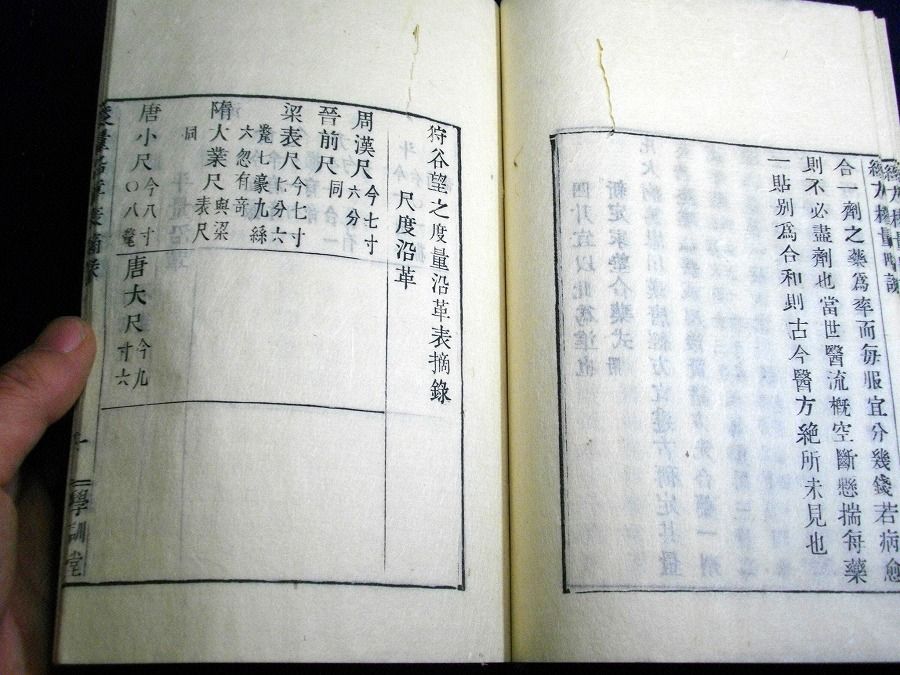 合一劑之藥爲率而每服宜分幾錢若病愈
則不必盡劑也當世醫流槪空斷懸揣每藥
一貼别爲合和則古今醫方絶所未見也
狩谷望之度量沿革表摘錄
尺度沿革
周漢尺今七寸六分
晉前尺同
梁表尺今七寸七分六
釐七豪九絲
六忽有奇
隋大業尺與梁表尺
同
唐小尺今八寸〇八釐
唐大尺今九寸六
學訓堂